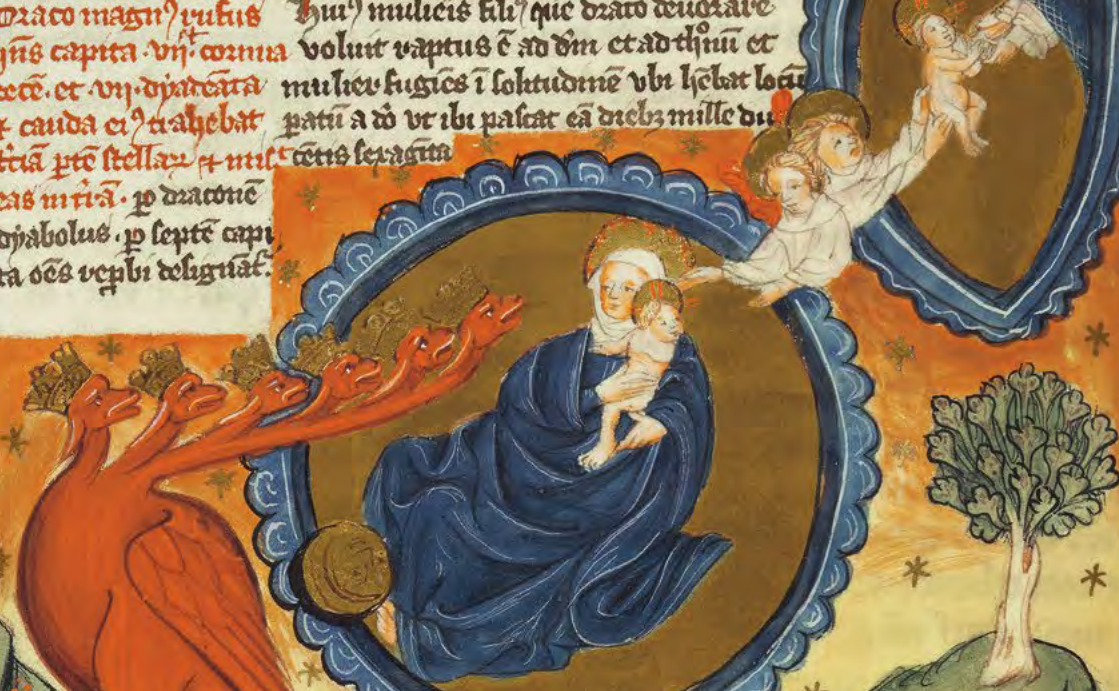 Draco magnꝰ rufus
capita · vii · cornua
et · vii · dyadeāta
cauda eiꝰ trahebat
ptē stellaꝝ
eas in trā · ꝑ draconē
dyabolus · ꝑ septē capi
ta oēs repbi designāt̉
Huiꝰ mulieris filiꝰ quē draco deuorare
voluit raptus ē ad dm̄ et ad thͦnū et
mulier fugiēs ī solitudinē vbi hēbat locū
patū a do vt ibi pascat eā diebꝫ mille du
cētis sexagīta